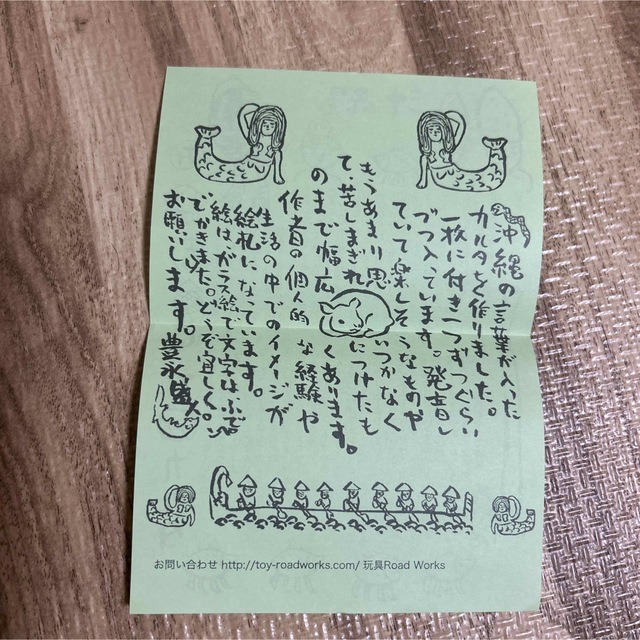 沖縄の言葉が入った
カルタを作りました。
一枚に付き一つずつぐらい
づつ入っています。発音し
ていて楽しそうなものや
もうあまり思いつかなく
て、苦しまぎれにつけたも
のまで幅広くあります。
作者の個人的な経験や
生活の中でのイメージが
絵札になっています。
絵はガラス絵で文字はふで
でかきました。どうぞ宜しく。
お願いします。豊永
お問い合わせ http://toy-roadworks.com/ 玩具Road Works